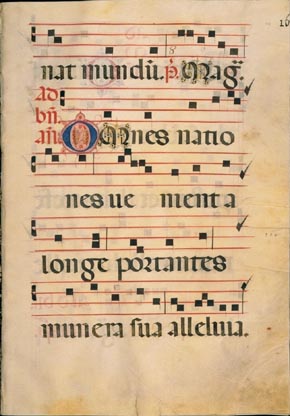 16
nat mundū. p̄. Mag̃.
ad
bñ.
añ. Omnes natio
nes ue nient a
longe portantes
munera sua alleluia.